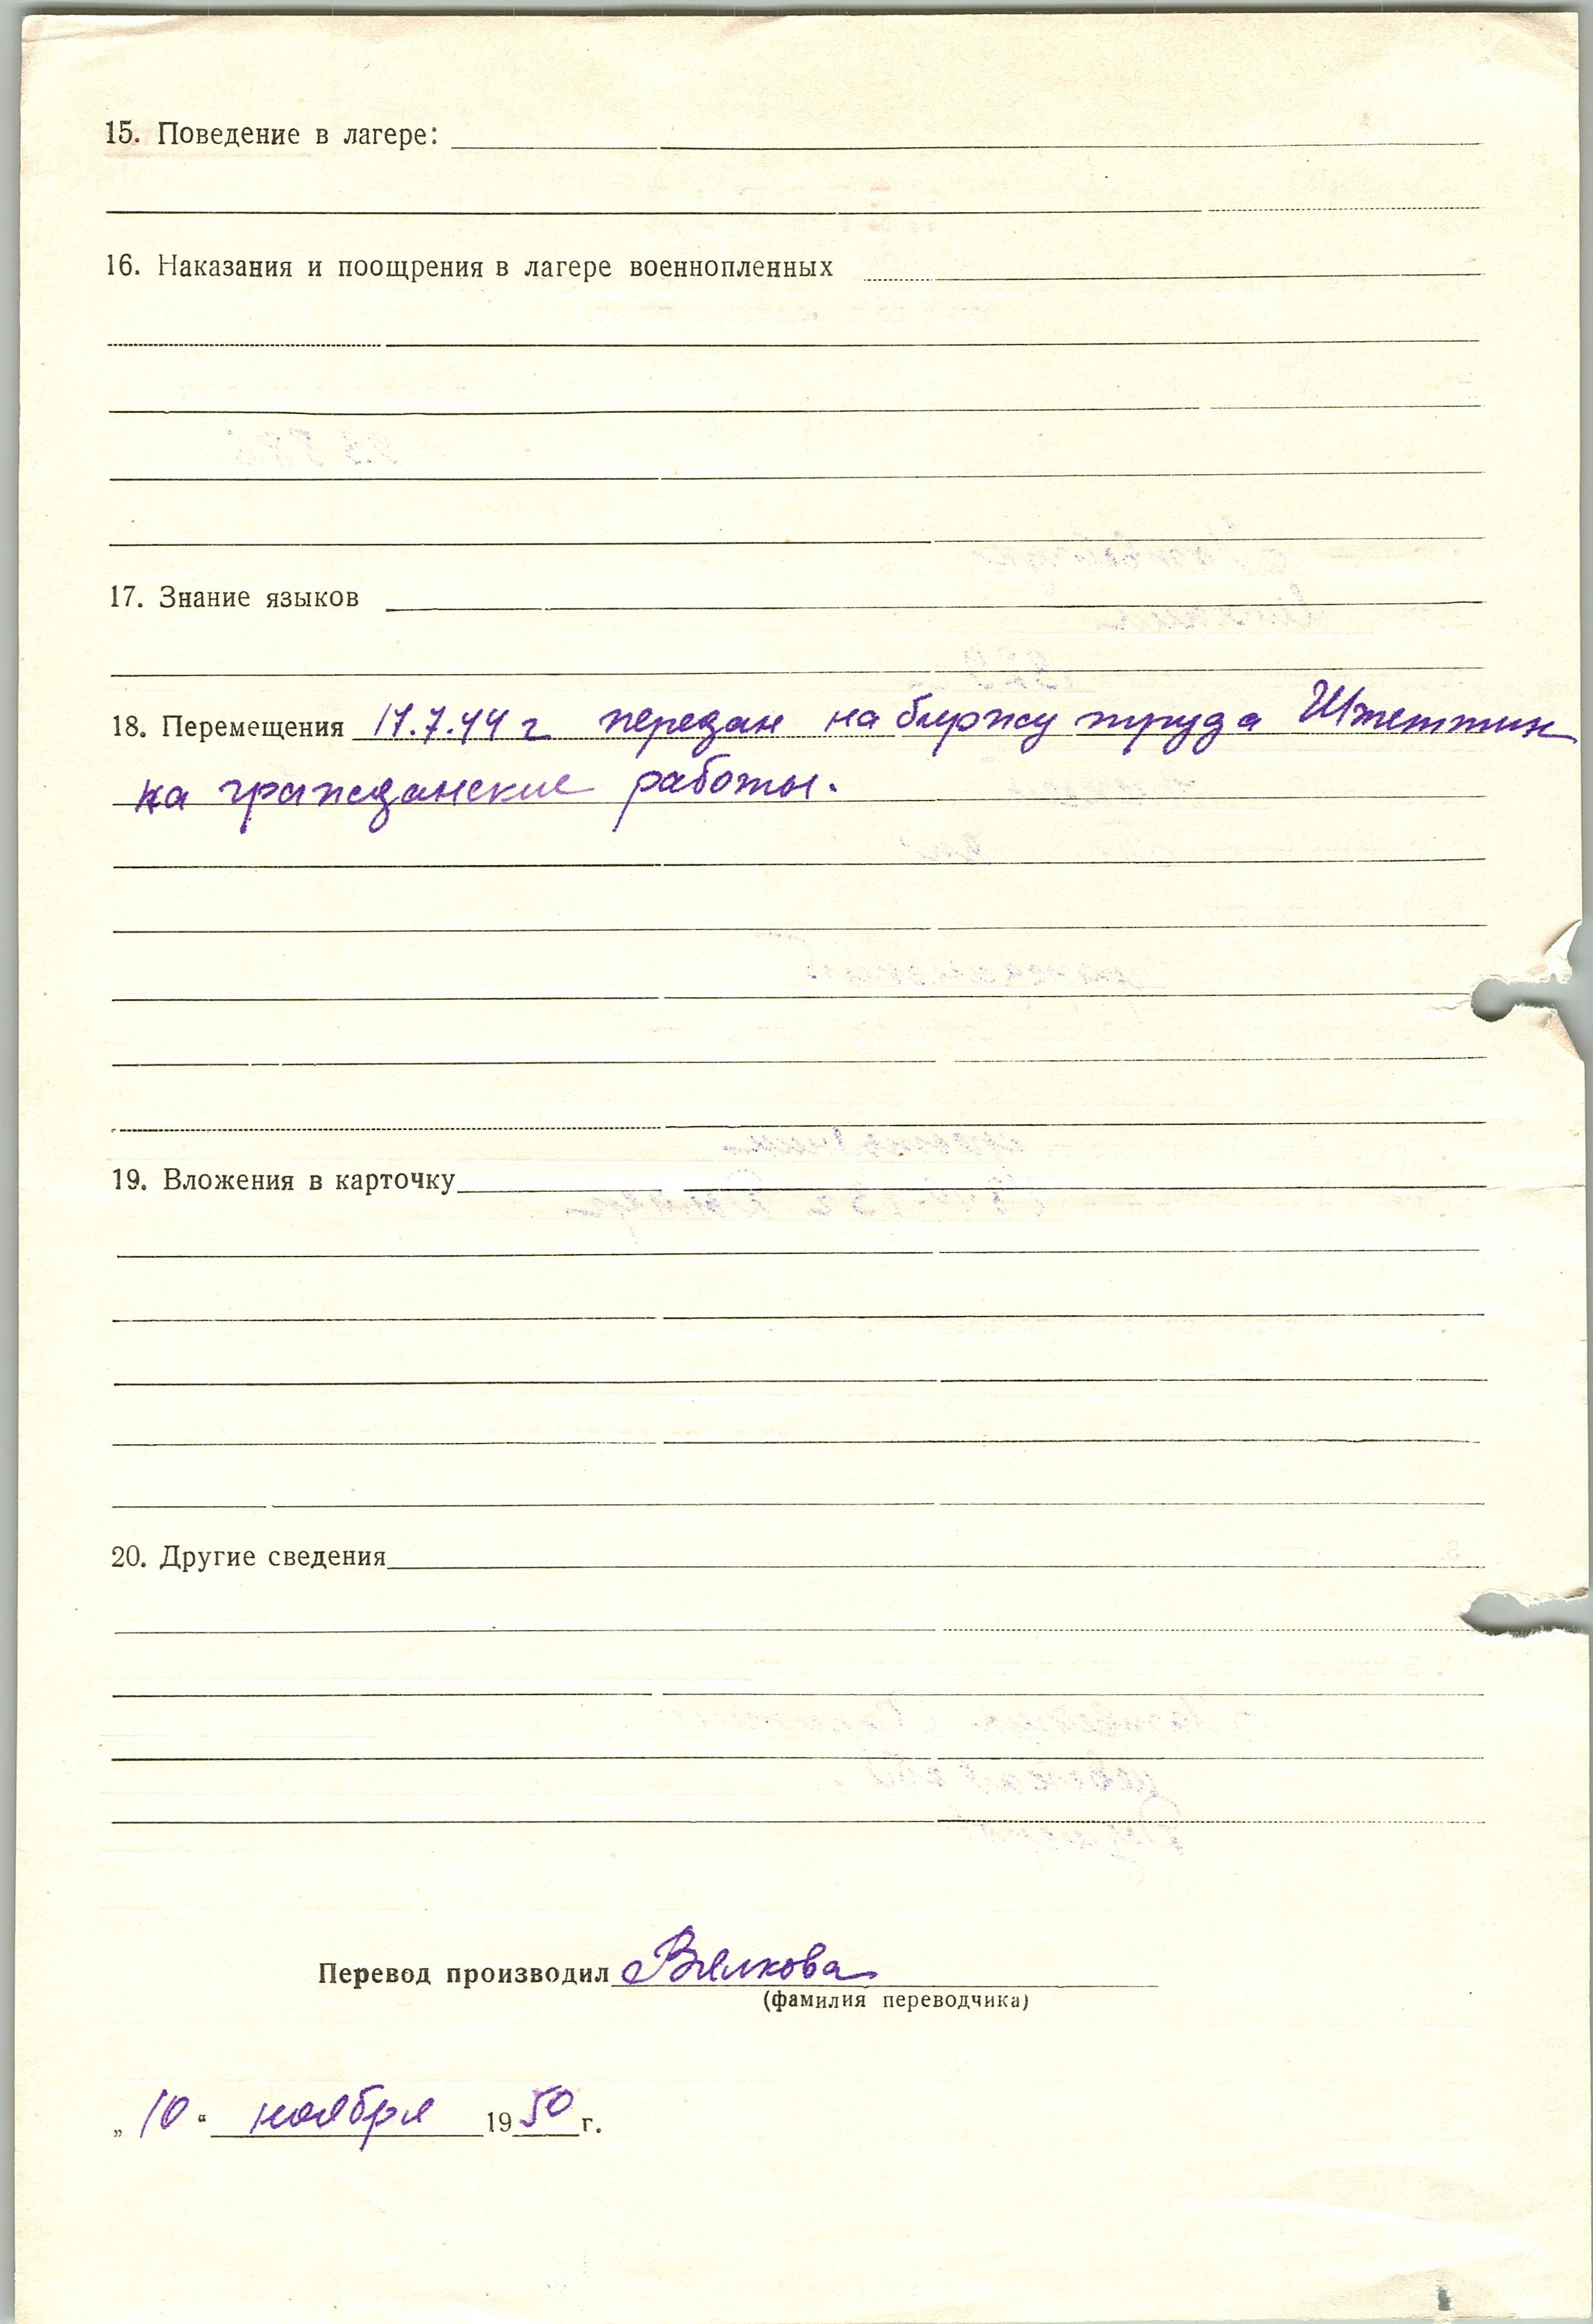 15. Поведение в лагере:
16. Наказания и поощрения в лагере военнопленных
17. Знание языков
18. Перемещения 17.7.44 г передан на биржу труда Штеттин
на гражданские работы.
19. Вложения в карточку
20. Другие сведения
Перевод производил Вялкова
(фамилия переводчика)
„10“ ноября 1950 г.